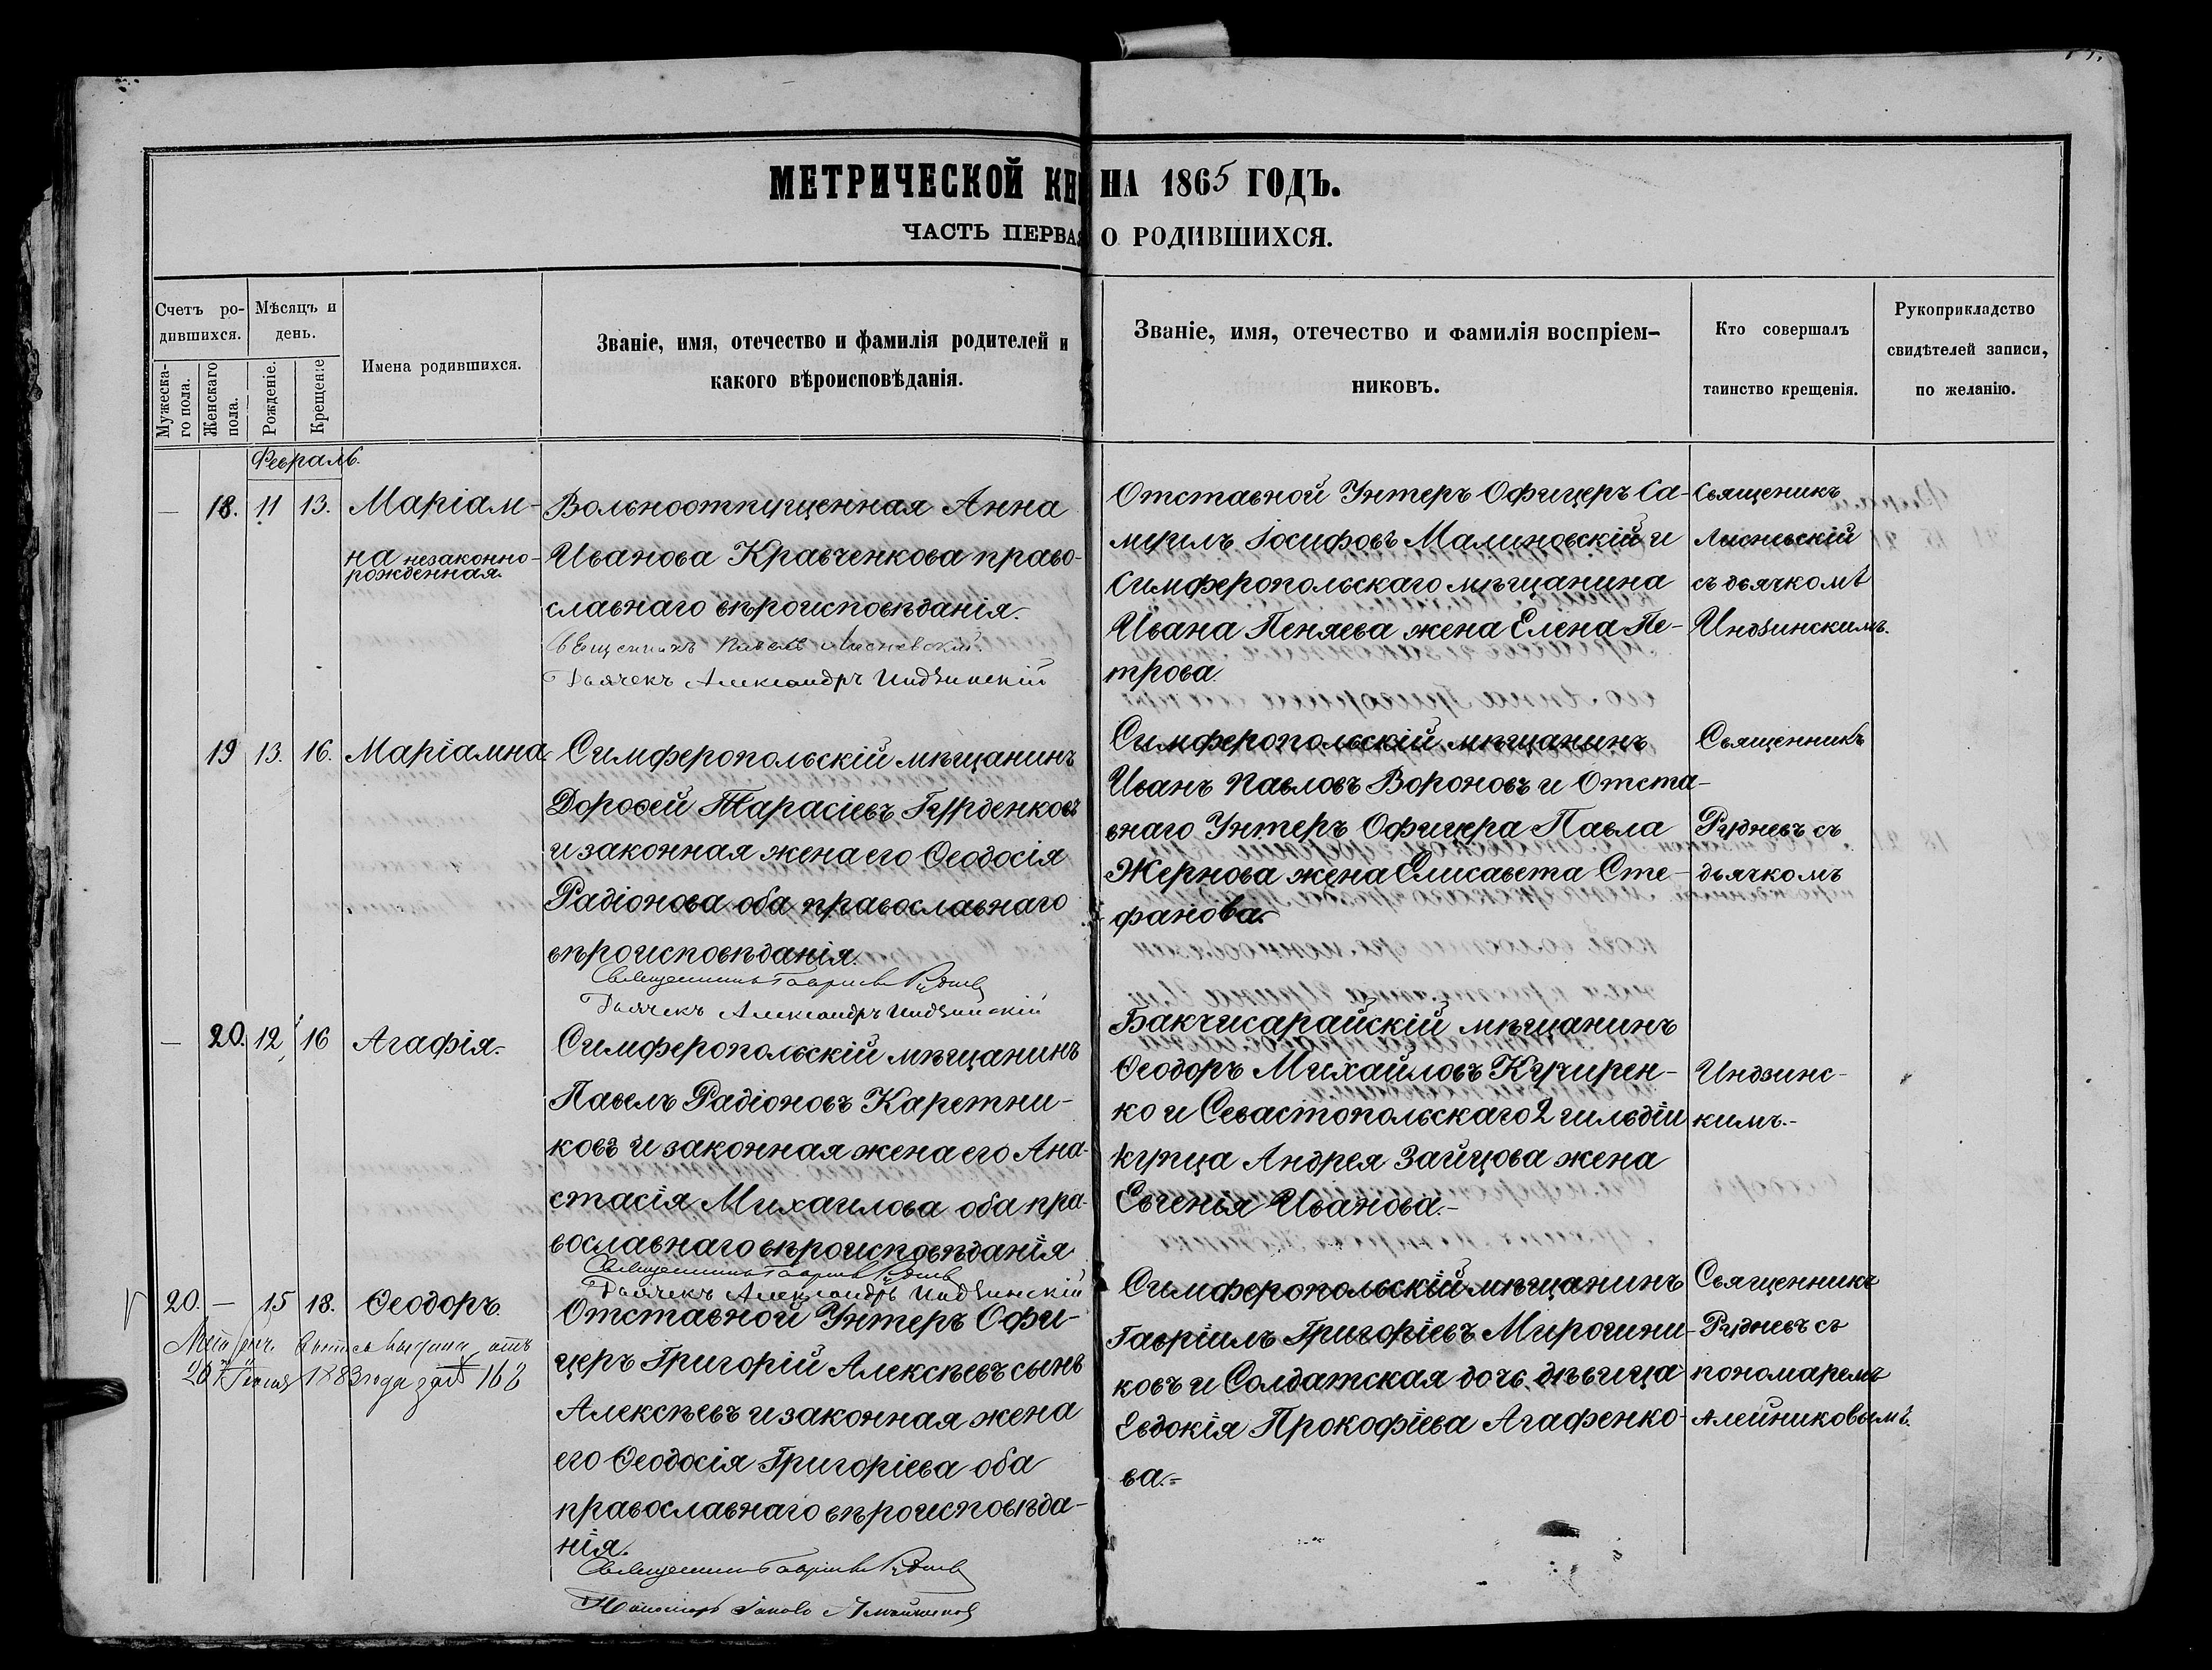 МЕТРИЧЕСКОЙ КНИ НА 1865 ГОДЪ.
ЧАСТЬ ПЕРВАЯ О РОДИВШИХСЯ.
Счетъ ро-
дившихся.
Мужеска-
го пола.
Женскаго
пола.
Мѣсяцъ и
день.
Рожденіе.
Крещеніе
Имена родившихся.
Званіе, имя, отечество и фамилія родителей и
какого вѣроисповѣданія.
Званіе, имя, отечество и фамилія воспріем-
никовъ.
Кто совершалъ
таинство крещенія.
Рукоприкладство
свидѣтелей записи,
по желанію.
Февраль.
— 18. 11 13. Маріам-
на незаконно-
рожденная.
Вольноотпущенная Анна
Иванова Кравченкова право-
славнаго вѣроисповѣданія.
Священникъ Павелъ Лисневскій.
Дьячекъ Александръ Индзинскій
Отставной Унтеръ Офицеръ Са-
муилъ Іосифовъ Малиновскій и
Симферопольскаго мѣщанина
Ивана Пеняева жена Елена Пе-
трова.
Священикъ
Лисневскій
съ дьячкомъ
Индзинскимъ.
19 13. 16. Маріамна.
Симферопольскій мѣщанинъ
Дорофей Тарасіевъ Гурденковъ
и законная жена его Ѳеодосія
Радіонова оба православнаго
вѣроисповѣданія.
Священникъ Гавріилъ Рудневъ
Дьячекъ Александръ Индзинскій
Симферопольскій мѣщанинъ
Иванъ Павловъ Вороновъ и Отста-
внаго Унтеръ Офицера Павла
Жернова жена Елисавета Сте-
фанова.
Священникъ
Рудневъ съ
дьячкомъ
— 20. 12 16 Агафія.
Симферопольскій мѣщанинъ
Павелъ Радіоновъ Каретни-
ковъ и законная жена его Ана-
стасія Михаилова оба пра-
вославнаго вѣроисповѣданія
Священникъ Гавріилъ Рудневъ
Дьячекъ Александръ Индзинскій
Бакчисарайскій мѣщанинъ
Ѳеодоръ Михайловъ Кучирен-
ко и Севастопольскаго 2 гильдіи
купца Андрея Зайцова жена
Евгенья Иванова.
Индзинс-
кимъ.
20. — 15 18. Ѳеодоръ.
1883 года за № 168
Отставной Унтеръ Офи-
церъ Григорій Алексѣевъ сынъ
Алексѣевъ и законная жена
его Ѳеодосія Григоріева оба
православнаго вѣроисповѣда-
нія.
Священникъ Гавріилъ Рудневъ
Пономарь Іаковъ Алейниковъ
Симферопольскій мѣщанинъ
Гавріилъ Григоріевъ Мирошни-
ковъ и Солдатская дочь дѣвица
Евдокія Прокофіева Агафенко-
ва.
Священникъ
Рудневъ съ
пономаремъ
Алейниковымъ.